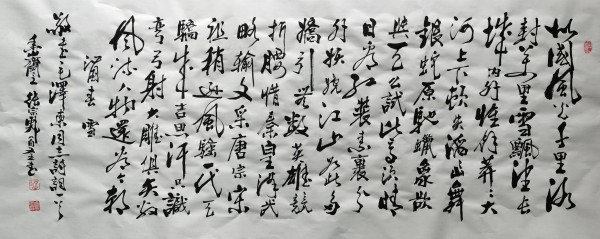 北國風光千里冰
封萬里雪飄望長
城内外惟餘莽莽大
河上下頓失滔滔山舞
銀蛇原馳蠟象欲
與天公試比高須晴
日看紅裝素裹分
外妖嬈江山如此多
嬌引無數英雄競
折腰惜秦皇漢武
略輸文采唐宗宋
祖稍遜風騷一代天
驕成吉思汗只識
彎弓射大雕俱矣數
風流人物還看今朝
春雪
毛澤東同志詩詞一首